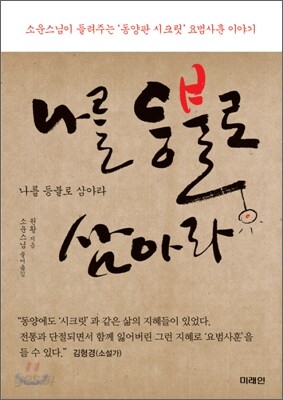 소운스님이 들려주는 '동양판 시크릿' 요범사훈 이야기
나를 등불로
삼아라
나를 등불로 삼아라
원황 지음
소운스님 풀어옮김
"동양에도 '시크릿' 과 같은 삶의 지혜들이 있었다.
전통과 단절되면서 함께 잃어버린 그런 지혜로 '요범사훈'을
들 수 있다." 김형경(소설가)
미래인
yes24.com